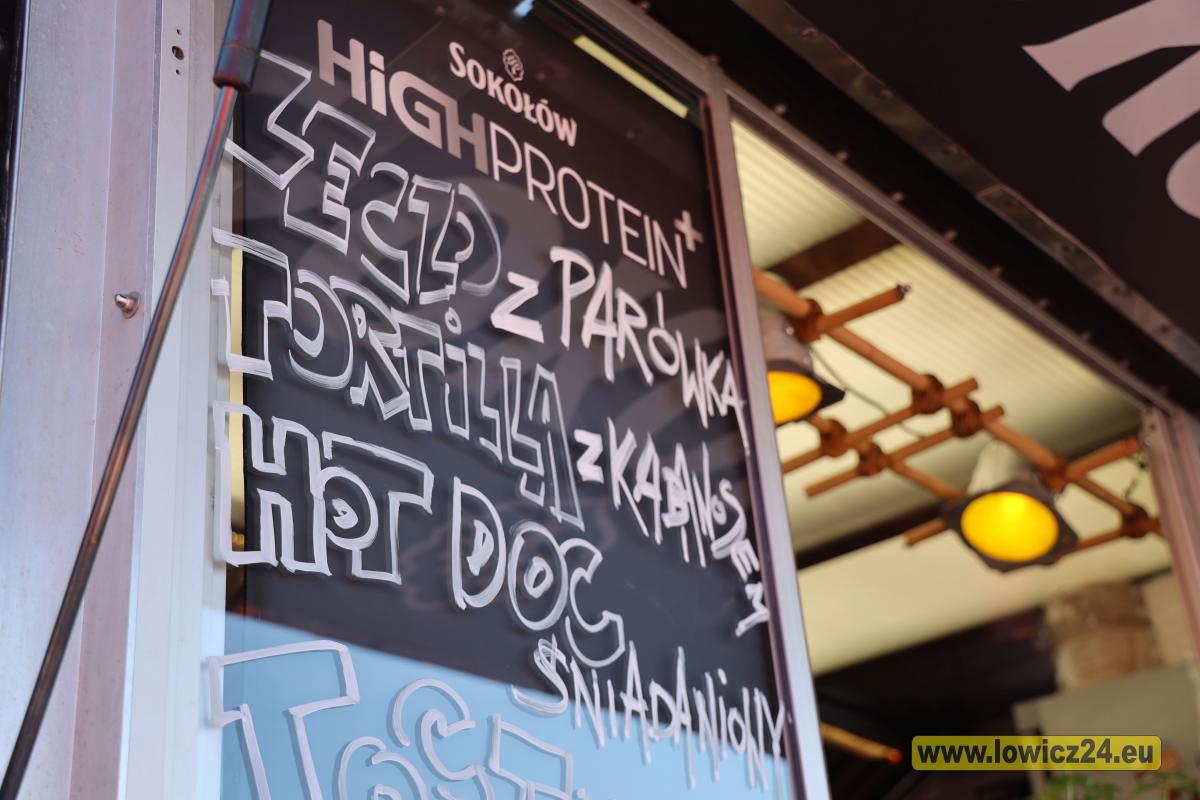 SOKOŁÓW
HiGHPROTEIN+
LECZO Z PARÓWKĄ
TORTiLLA Z KABANOSEM
HOT DOG
ŚNIADANIOWY
www.lowicz24.eu